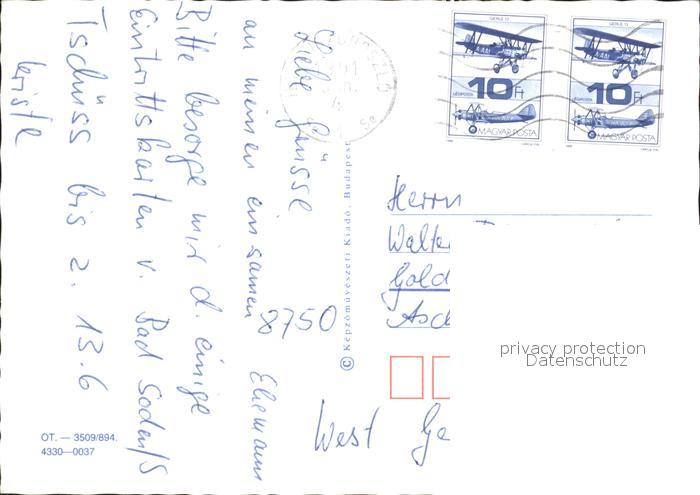 Liebe Grüsse
an meinen einsamen Ehemann
Bitte besorge mir d. einige
Eintrittskarten v. Bad Soden/S
Tschüss bis z. 13.6
GERLE 13
10 Ft
LÉGIPOSTA
MAGYAR POSTA
GERLE 13
10 Ft
LÉGIPOSTA
MAGYAR POSTA
© Képzőművészeti Kiadó, Budapest
Herrn
Walte
Gold
8750 Asc
West Ge
privacy protection
Datenschutz
OT. — 3509/894.
4330—0037